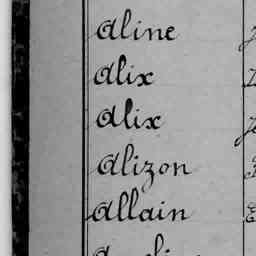 Aline
Alix
Alix
Alizon
Allain